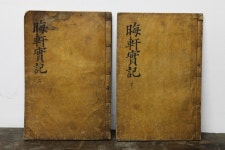 晦軒實記
晦軒實記